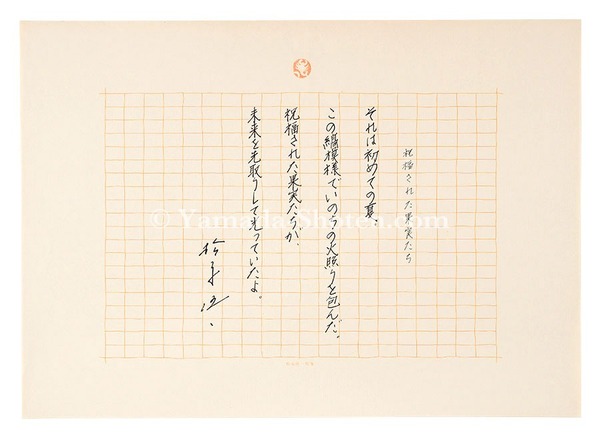 祝福された果実たち
それは初めての夏、
この縞模様でいのちの火照りを包んだ。
祝福された果実たちが、
未来を先取りして光っていたよ。
© Yamada Shoten.com